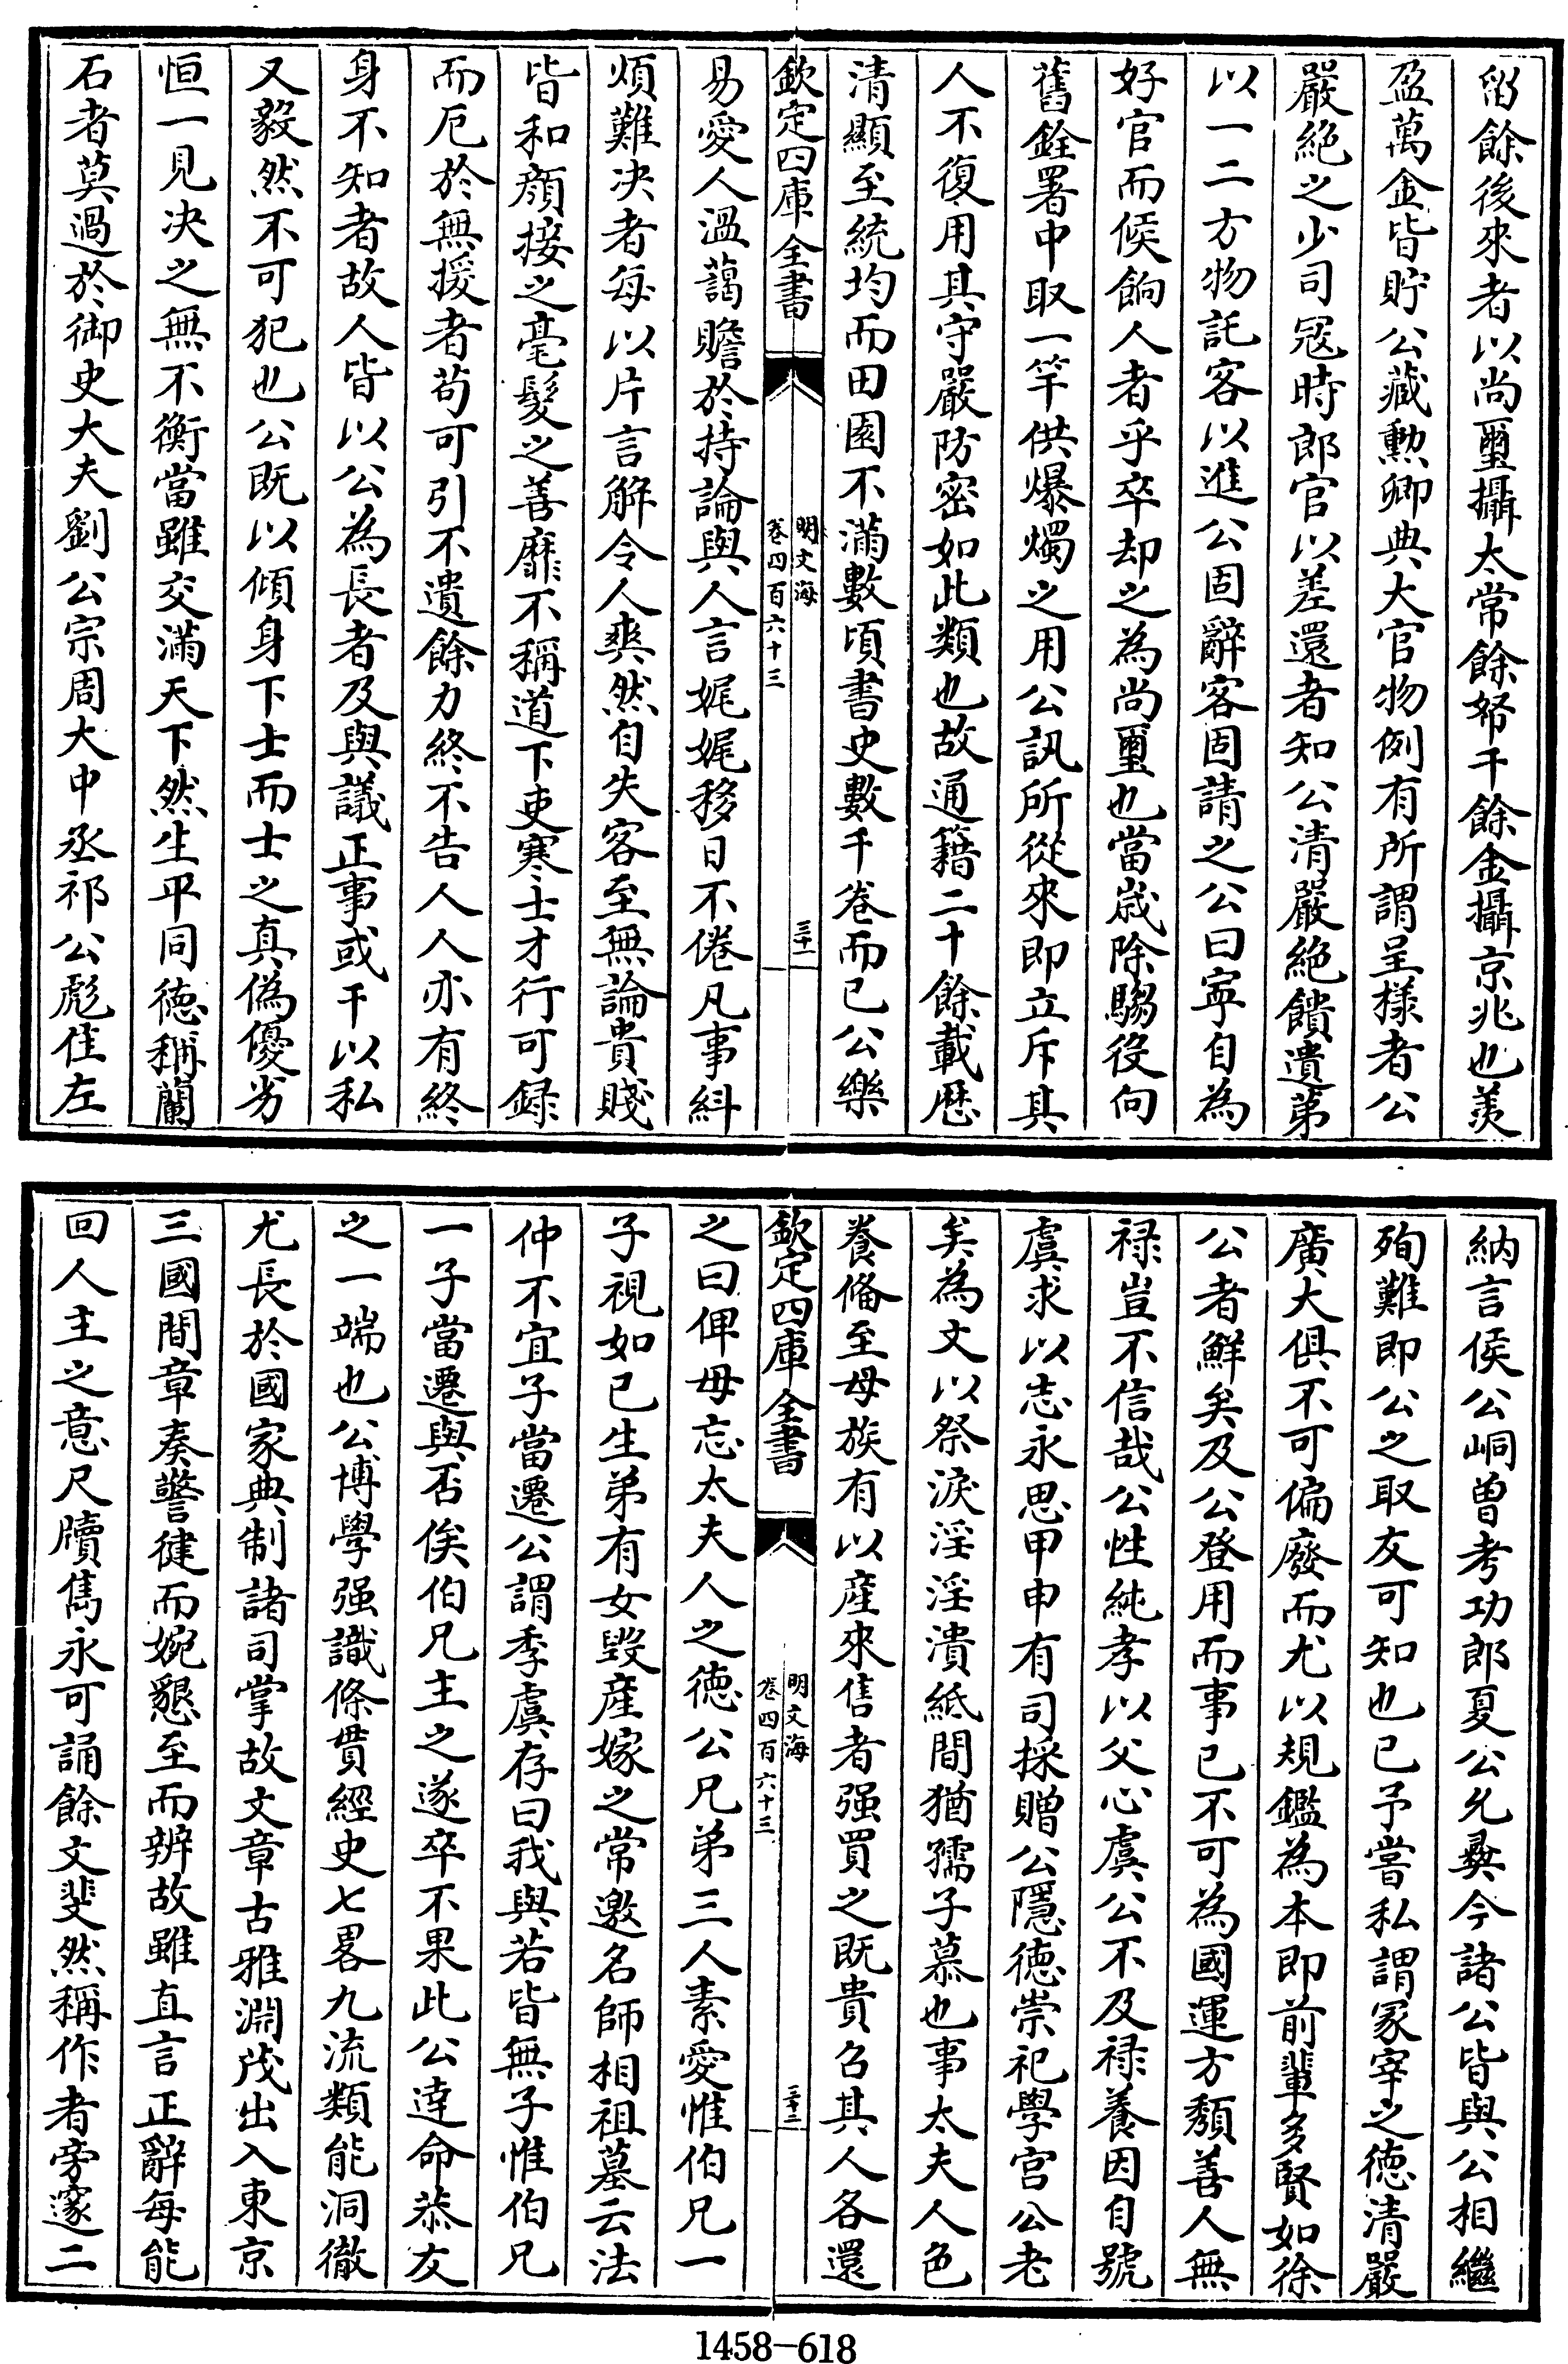 留餘後來者以尚璽攝太常餘帑千餘金攝京兆也羨
盈萬金皆貯公藏勲卿典大官物例有所謂呈樣者公
嚴絶之少司寇時郎官以差還者知公清嚴絶饋遺苐
以一二方物託客以進公固辭客固請之公曰寧自為
好官而候餉人者乎卒却之為尚璽也當歳除騶役向
舊銓署中取一竿供爆燭之用公訊所從來即立斥其
人不復用其守嚴防密如此類也故通籍二十餘載歴
清顯至統均而田園不滿數頃書史數千卷而已公樂
欽定四庫全書
明文海
卷四百六十三
三十一
易愛人溫藹贍於持論與人言娓娓移日不倦凡事糾
煩難决者每以片言解令人爽然自失客至無論貴賤
皆和顔接之毫髮之善靡不稱道下吏寒士才行可録
而厄於無援者苟可引不遺餘力終不告人人亦有終
身不知者故人皆以公為長者及與議正事或干以私
又毅然不可犯也公既以傾身下士而士之真偽優劣
恒一見决之無不衡當雖交滿天下然生平同徳稱蘭
石者莫過於御史大夫劉公宗周大中丞祁公彪佳左
納言侯公峒曽考功郎夏公允彞今諸公皆與公相繼
殉難即公之取友可知也已予嘗私謂冢宰之徳清嚴
廣大俱不可偏廢而尤以規鑑為本即前輩多賢如徐
公者鮮矣及公登用而事已不可為國運方頽善人無
禄豈不信哉公性純孝以父心虞公不及禄養因自號
虞求以志永思甲申有司採贈公隱徳崇祀學宫公老
矣為文以祭淚淫淫漬紙間猶孺子慕也事太夫人色
養備至母族有以産來售者强買之既貴召其人各還
欽定四庫全書
明文海
卷四百六十三
三十二
之曰俾毋忘太夫人之徳公兄弟三人素愛惟伯兄一
子視如已生弟有女毁産嫁之常邀名師相祖墓云法
仲不宜子當遷公謂季虞存曰我與若皆無子惟伯兄
一子當遷與否俟伯兄主之遂卒不果此公達命恭友
之一端也公博學强識條貫經史七畧九流類能洞徹
尤長於國家典制諸司掌故文章古雅淵茂出入東京
三國間章奏警健而婉懇至而辨故雖直言正辭每能
回人主之意尺牘雋永可誦餘文斐然稱作者旁邃二
1458—618